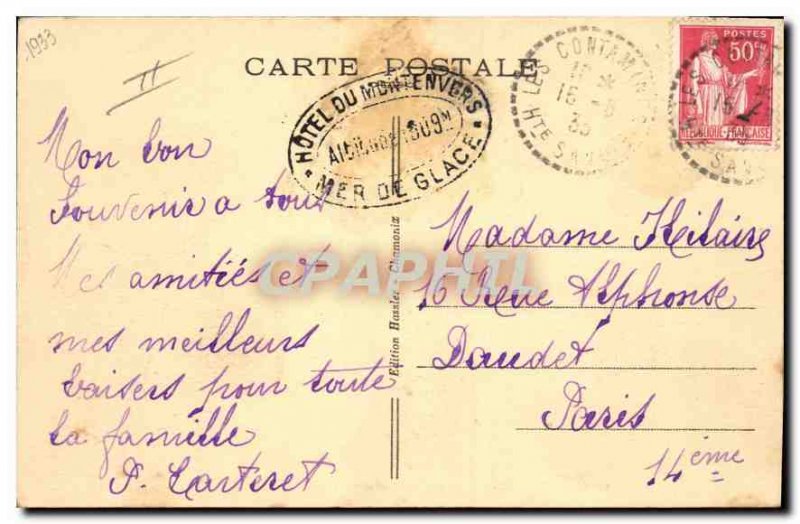 1933
CARTE POSTALE
HÔTEL DU MONTENVERS
Altitude 1909 M
MER DE GLACE
LES CONTAMIN
16
HTE SAV
POSTES
50F
REPUBLIQUE FRANÇAISE
Mon bon
Souvenir a tous
Mes amitiés et
mes meilleurs
baisers pour toute
la famille
P. Carteret
Edition Hassler Chamonix
CPAPHIL
Madame Hilaire
16 Rue Alphonse
Daudet
Paris
14ème